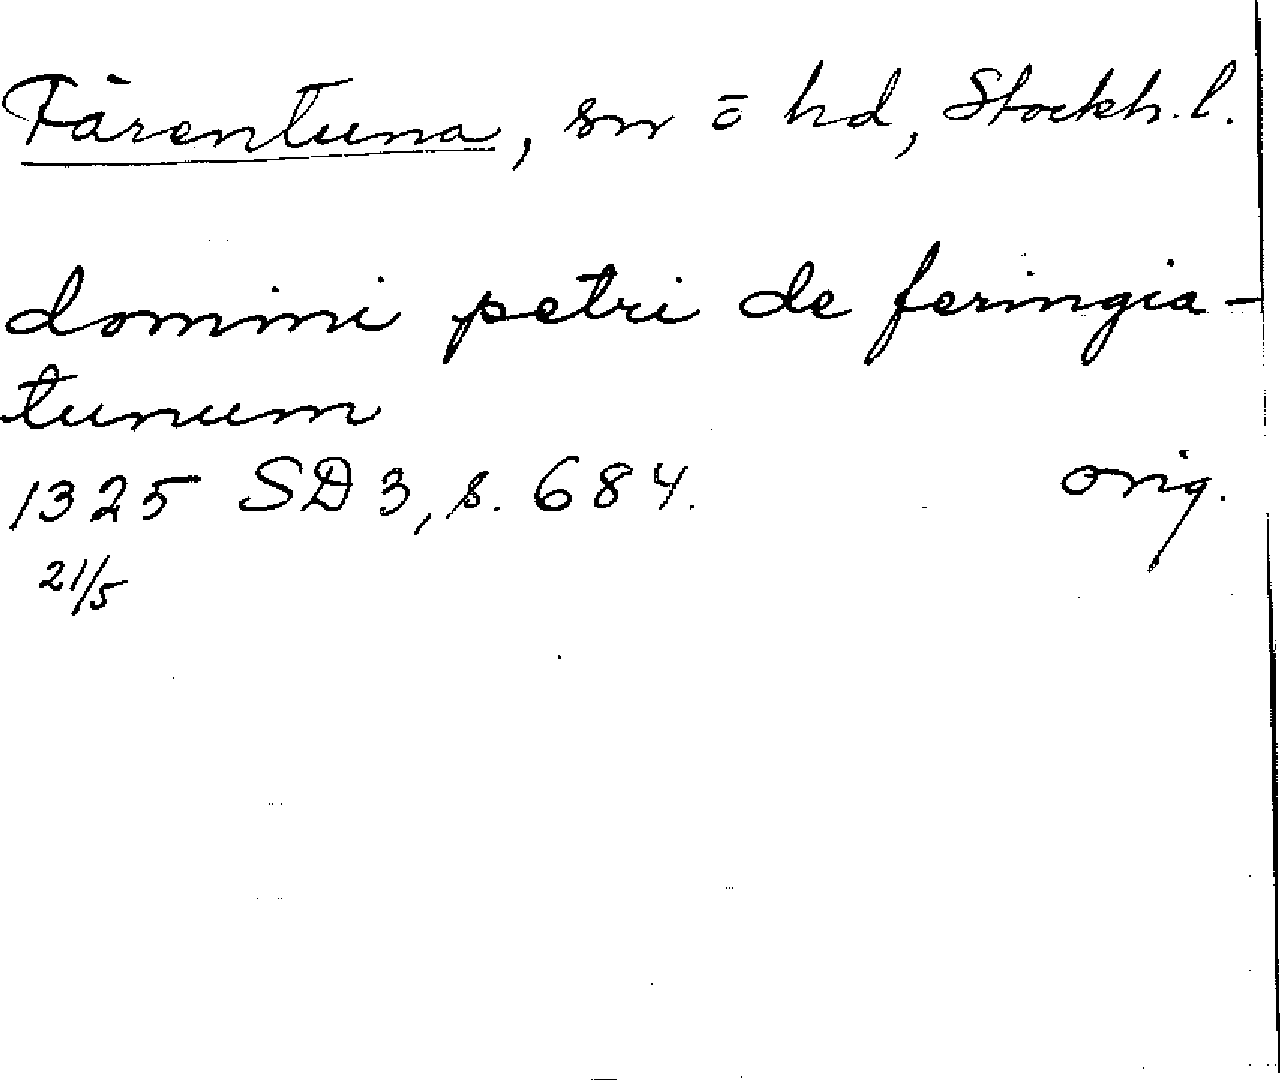 Färentuna, sn o hd, Stockh. l.
domini petri de feringia-
tunum
1325 SD 3, s. 684. orig.
21/5